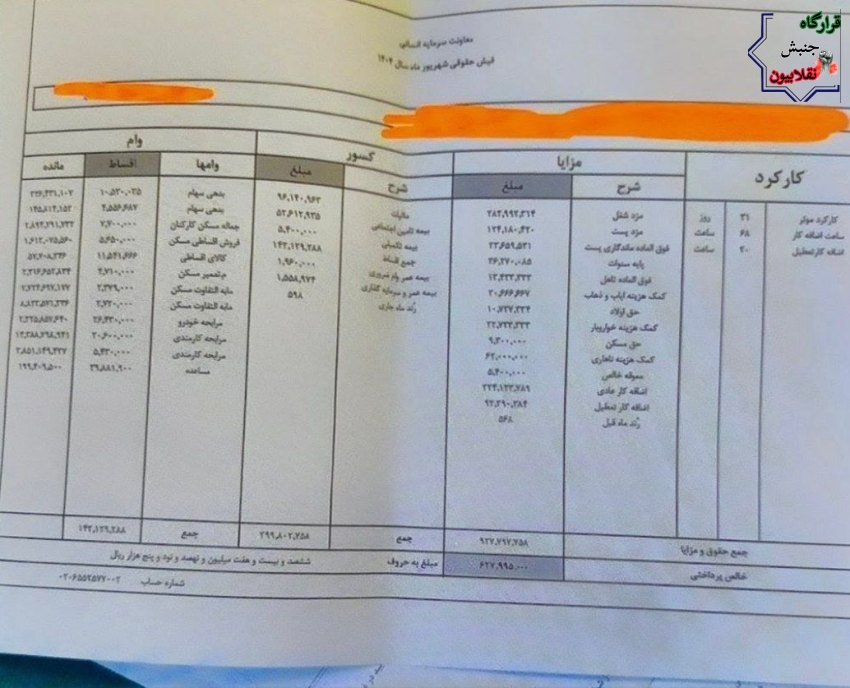 قرارگاه
جنبش
نقلابیون
معاونت سرمایه انسانی
فیش حقوقی شهریور ماه سال ۱۴۰۴
کارکرد
مزایا
کسور
وام
شرح
مبلغ
شرح
مبلغ
وامها
اقساط
مانده
کارکرد موثر ۳۱ روز
ساعت اضافه کار ۶۸ ساعت
اضافه کار تعطیل ۲۰ ساعت
مزد شغل ۲۸۲,۹۹۲,۳۱۴
مزد پست ۱۲۴,۱۸۰,۴۲۰
فوق العاده ماندگاری پست ۲۳,۶۵۹,۵۳۱
پایه سنوات ۳۶,۲۷۰,۰۸۵
فوق العاده تاهل ۱۳,۳۳۳,۳۳۳
کمک هزینه ایاب و ذهاب ۲۰,۶۶۶,۶۶۷
حق اولاد ۱۰,۷۳۷,۳۳۴
کمک هزینه خواروبار ۲۲,۷۳۳,۳۳۳
حق مسکن ۹,۳۰۰,۰۰۰
کمک هزینه ناهاری ۶۲,۰۰۰,۰۰۰
معوقه خالص ۵,۴۰۰,۰۰۰
اضافه کار عادی ۲۲۴,۱۳۳,۷۸۹
اضافه کار تعطیل ۹۲,۳۹۰,۳۸۴
رُند ماه قبل ۵۶۸
مالیات ۹۶,۱۴۰,۹۶۳
بیمه تامین اجتماعی ۵۲,۶۱۲,۹۳۵
بیمه تکمیلی ۵,۴۰۰,۰۰۰
جمع اقساط ۱۴۲,۱۲۹,۲۸۸
بیمه عمر وام ضروری ۱,۹۶۰,۰۰۰
بیمه عمر و سرمایه گذاری ۱,۵۵۸,۹۷۴
رُند ماه جاری ۵۹۸
بدهی سهام ۱۰,۵۳۰,۰۳۵ ۳۳۶,۴۳۱,۱۰۷
بدهی سهام ۴,۵۵۶,۶۸۷ ۱۴۵,۸۱۴,۱۵۲
جماله مسکن کارکنان ۷,۷۰۰,۰۰۰ ۲,۸۹۴,۲۹۱,۷۳۲
فروش اقساطی مسکن ۵,۶۵۰,۰۰۰ ۱,۶۱۲,۰۷۵,۵۶۰
کالای اقساطی ۱۱,۵۴۱,۶۶۶ ۵۷,۷۰۸,۳۳۶
م.تعمیر مسکن ۴,۷۱۰,۰۰۰ ۲,۲۱۶,۶۵۲,۸۳۴
مابه التفاوت مسکن ۲,۳۷۹,۰۰۰ ۲,۷۲۴,۶۹۷,۱۷۷
مابه التفاوت مسکن ۲,۷۲۰,۰۰۰ ۸,۸۳۲,۵۷۱,۳۳۶
مرابحه خودرو ۲۶,۴۳۰,۰۰۰ ۲,۲۲۵,۸۵۷,۶۴۰
مرابحه کارمندی ۲۰,۶۰۰,۰۰۰ ۱۳,۳۸۸,۷۹۸,۹۴۱
مرابحه کارمندی ۵,۴۳۰,۰۰۰ ۳,۸۵۱,۱۴۹,۴۲۷
مساعده ۳۹,۸۸۱,۹۰۰ ۱۹۹,۴۰۹,۵۰۰
جمع حقوق و مزایا ۹۲۷,۷۹۷,۷۵۸ جمع ۲۹۹,۸۰۲,۷۵۸ جمع ۱۴۲,۱۲۹,۲۸۸
خالص پرداختی ۶۲۷,۹۹۵,۰۰۰ مبلغ به حروف ششصد و بیست و هفت میلیون و نهصد و نود و پنج هزار ریال
شماره حساب ۰۲۰۶۵۵۲۵۷۷۰۰۲